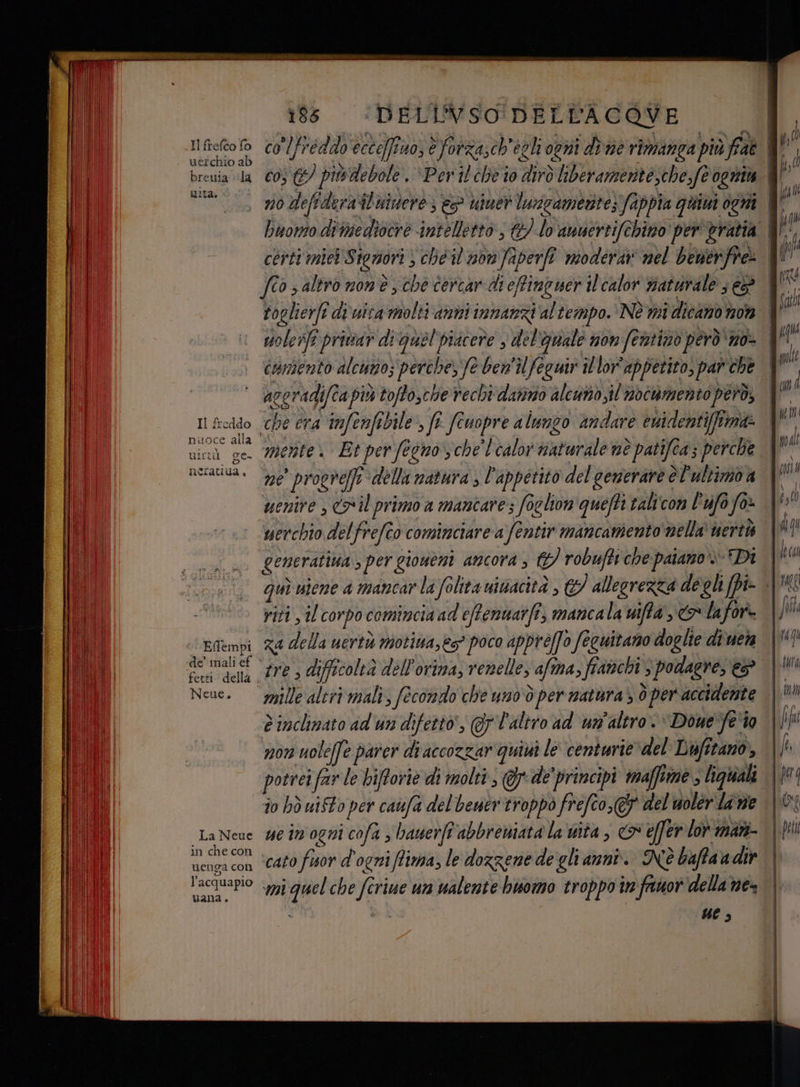 186 DELL'VSO DELL'ACQVE
Il frescoso
uerchio ab
breuia la
uita.
co'l freddo eccessiuo, è forza, ch'egli ogni dì ne rimanga più fiac
co, & più debole. Per il che io dirò liberamente, che, se ogniu
no desidera il uiuere; & uiuer lungamente; sappia quiui ogni
huomo di mediocre intelletto, & lo auuertischino per gratia
certi miei Signori, che il non sapersi moderar nel beuer fre-
sco, altro non è, che cercar di estinguer il calor naturale; &
togliersi di uita molti anni innanzi al tempo. Nè mi dicano non
uolersi priuar di quel piacere, del quale non sentino però no-
cumento alcuno; perche, se ben'il seguir il lor'appetito, par che
aggradisca più tosto, che rechi danno alcuno, il nocumento però,
Il freddo
nuoce alla
uirtù ge-
neratiua.
che era insensibile, si scuopre a lungo andare euidentissima-
mente. Et per segno, che'l calor naturale nè patisca; perche
ne' progressi della natura, l'appetito del generare è l'ultimo a
uenire, & il primo a mancare; soglion questi tali con l'uso so-
uerchio del fresco cominciare a sentir mancamento nella uertù
generatiua, per gioueni ancora, & robusti che paiano. Di
quì uiene a mancar la solita uiuacità, & allegrezza de gli spi-
riti, il corpo comincia ad estenuarsi, manca la uista, & la for-
Essempi
de' mali ef
fetti della
Neue.
za della uertù motiua, & poco appresso seguitano doglie di uen
tre, difficoltà dell'orina, renelle, asma, fianchi, podagre, &
mille altri mali, secondo che uno ò per natura, ò per accidente
è inclinato ad un difetto, & l'altro ad un'altro. Doue se io
non uolesse parer di accozzar quiui le centurie del Lusitano,
potrei far le historie di molti, & de' principi massime, liquali
io hò uisto per causa del beuer troppo fresco, & del uoler la ne
La Neue
in che con
uenga con
l'acquapio
uana.
ue in ogni cosa, hauersi abbreuiata la uita, & esser lor man-
cato fuor d'ogni stima, le dozzene de gli anni. Nè basta a dir
mi quel che scriue un ualente huomo troppo in fauor della ne-
ue,